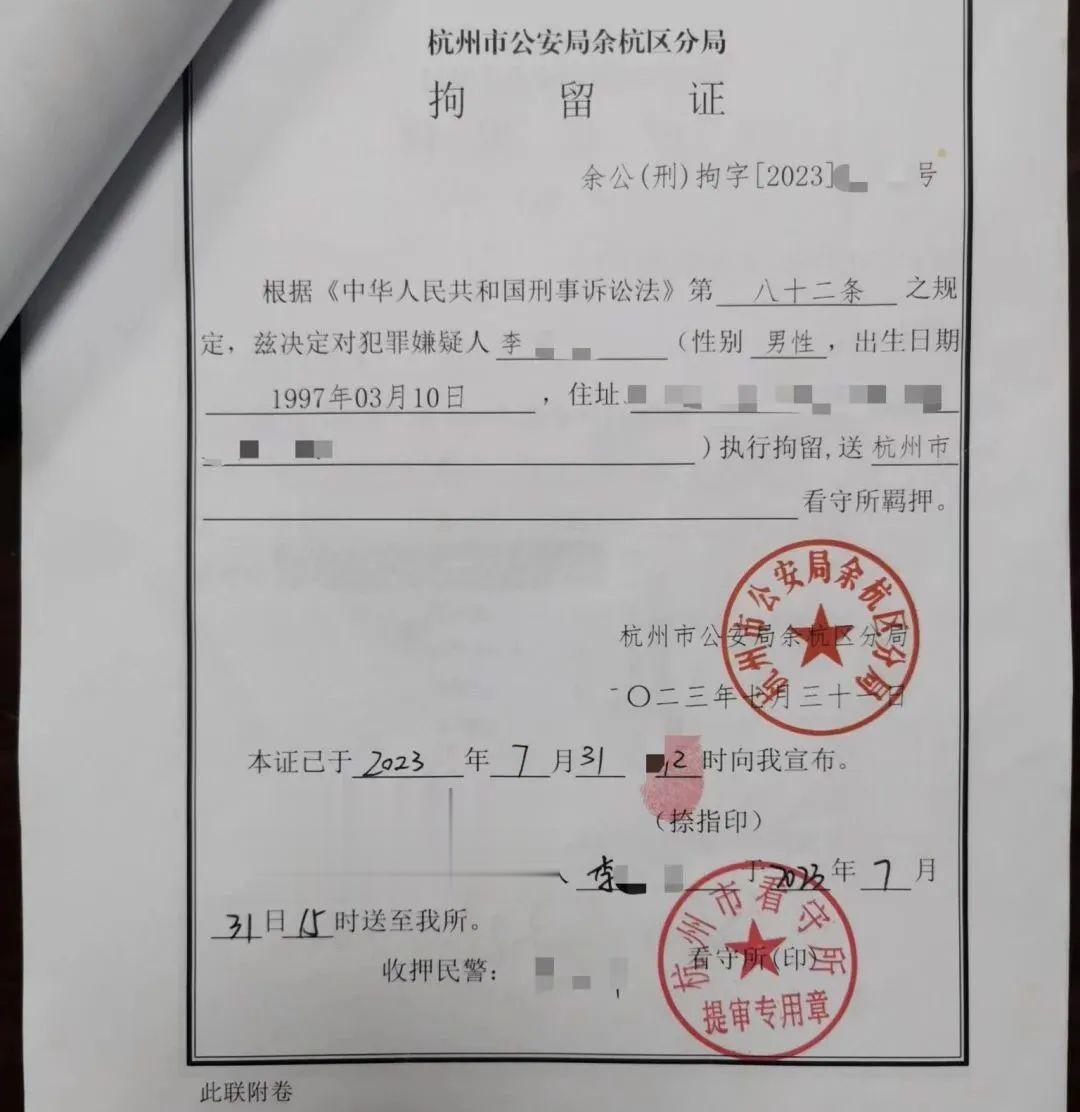 杭州市公安局余杭区分局
拘留证
余公(刑)拘字[2023] 号
根据《中华人民共和国刑事诉讼法》第 八十二条 之规
定，兹决定对犯罪嫌疑人 李 （性别 男性，出生日期
1997年03月10日 ，住址
）执行拘留,送 杭州市
看守所羁押。
杭州市公安局余杭区分局
杭州市公安局余杭区分局
〇二三年七月三十一日
本证已于 2023 年 7 月 31 2 时向我宣布。
（捺指印）
、李 于 2023 年 7 月
31 日 15 时送至我所。
收押民警： 看守所(印)
杭州市看守所
提审专用章
此联附卷